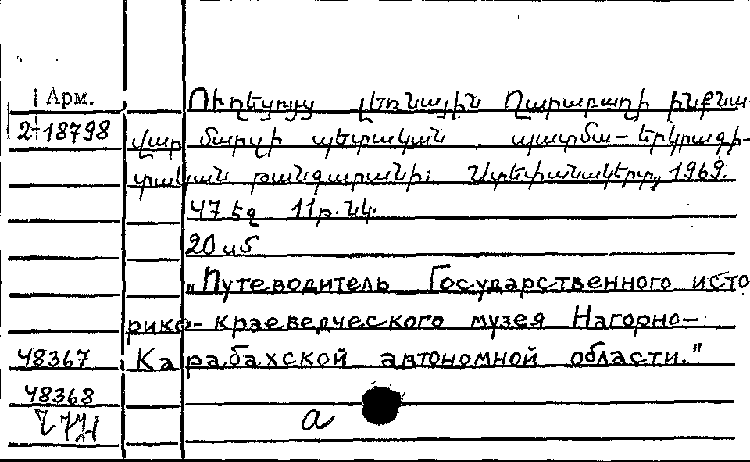 Арм.
Ուղեցույց Լեռնային Ղարաբաղի ինքնա-
2-18798 վար մարզի պետական պատմա-երկրագի-
տական թանգարանի: Ստեփանակերտ, 1969.
47 էջ 11ր. նկ.
20 սմ
„Путеводитель Государственного исто
рико-краеведческого музея Нагорно-
48367 Карабахской автономной области."
48368
a